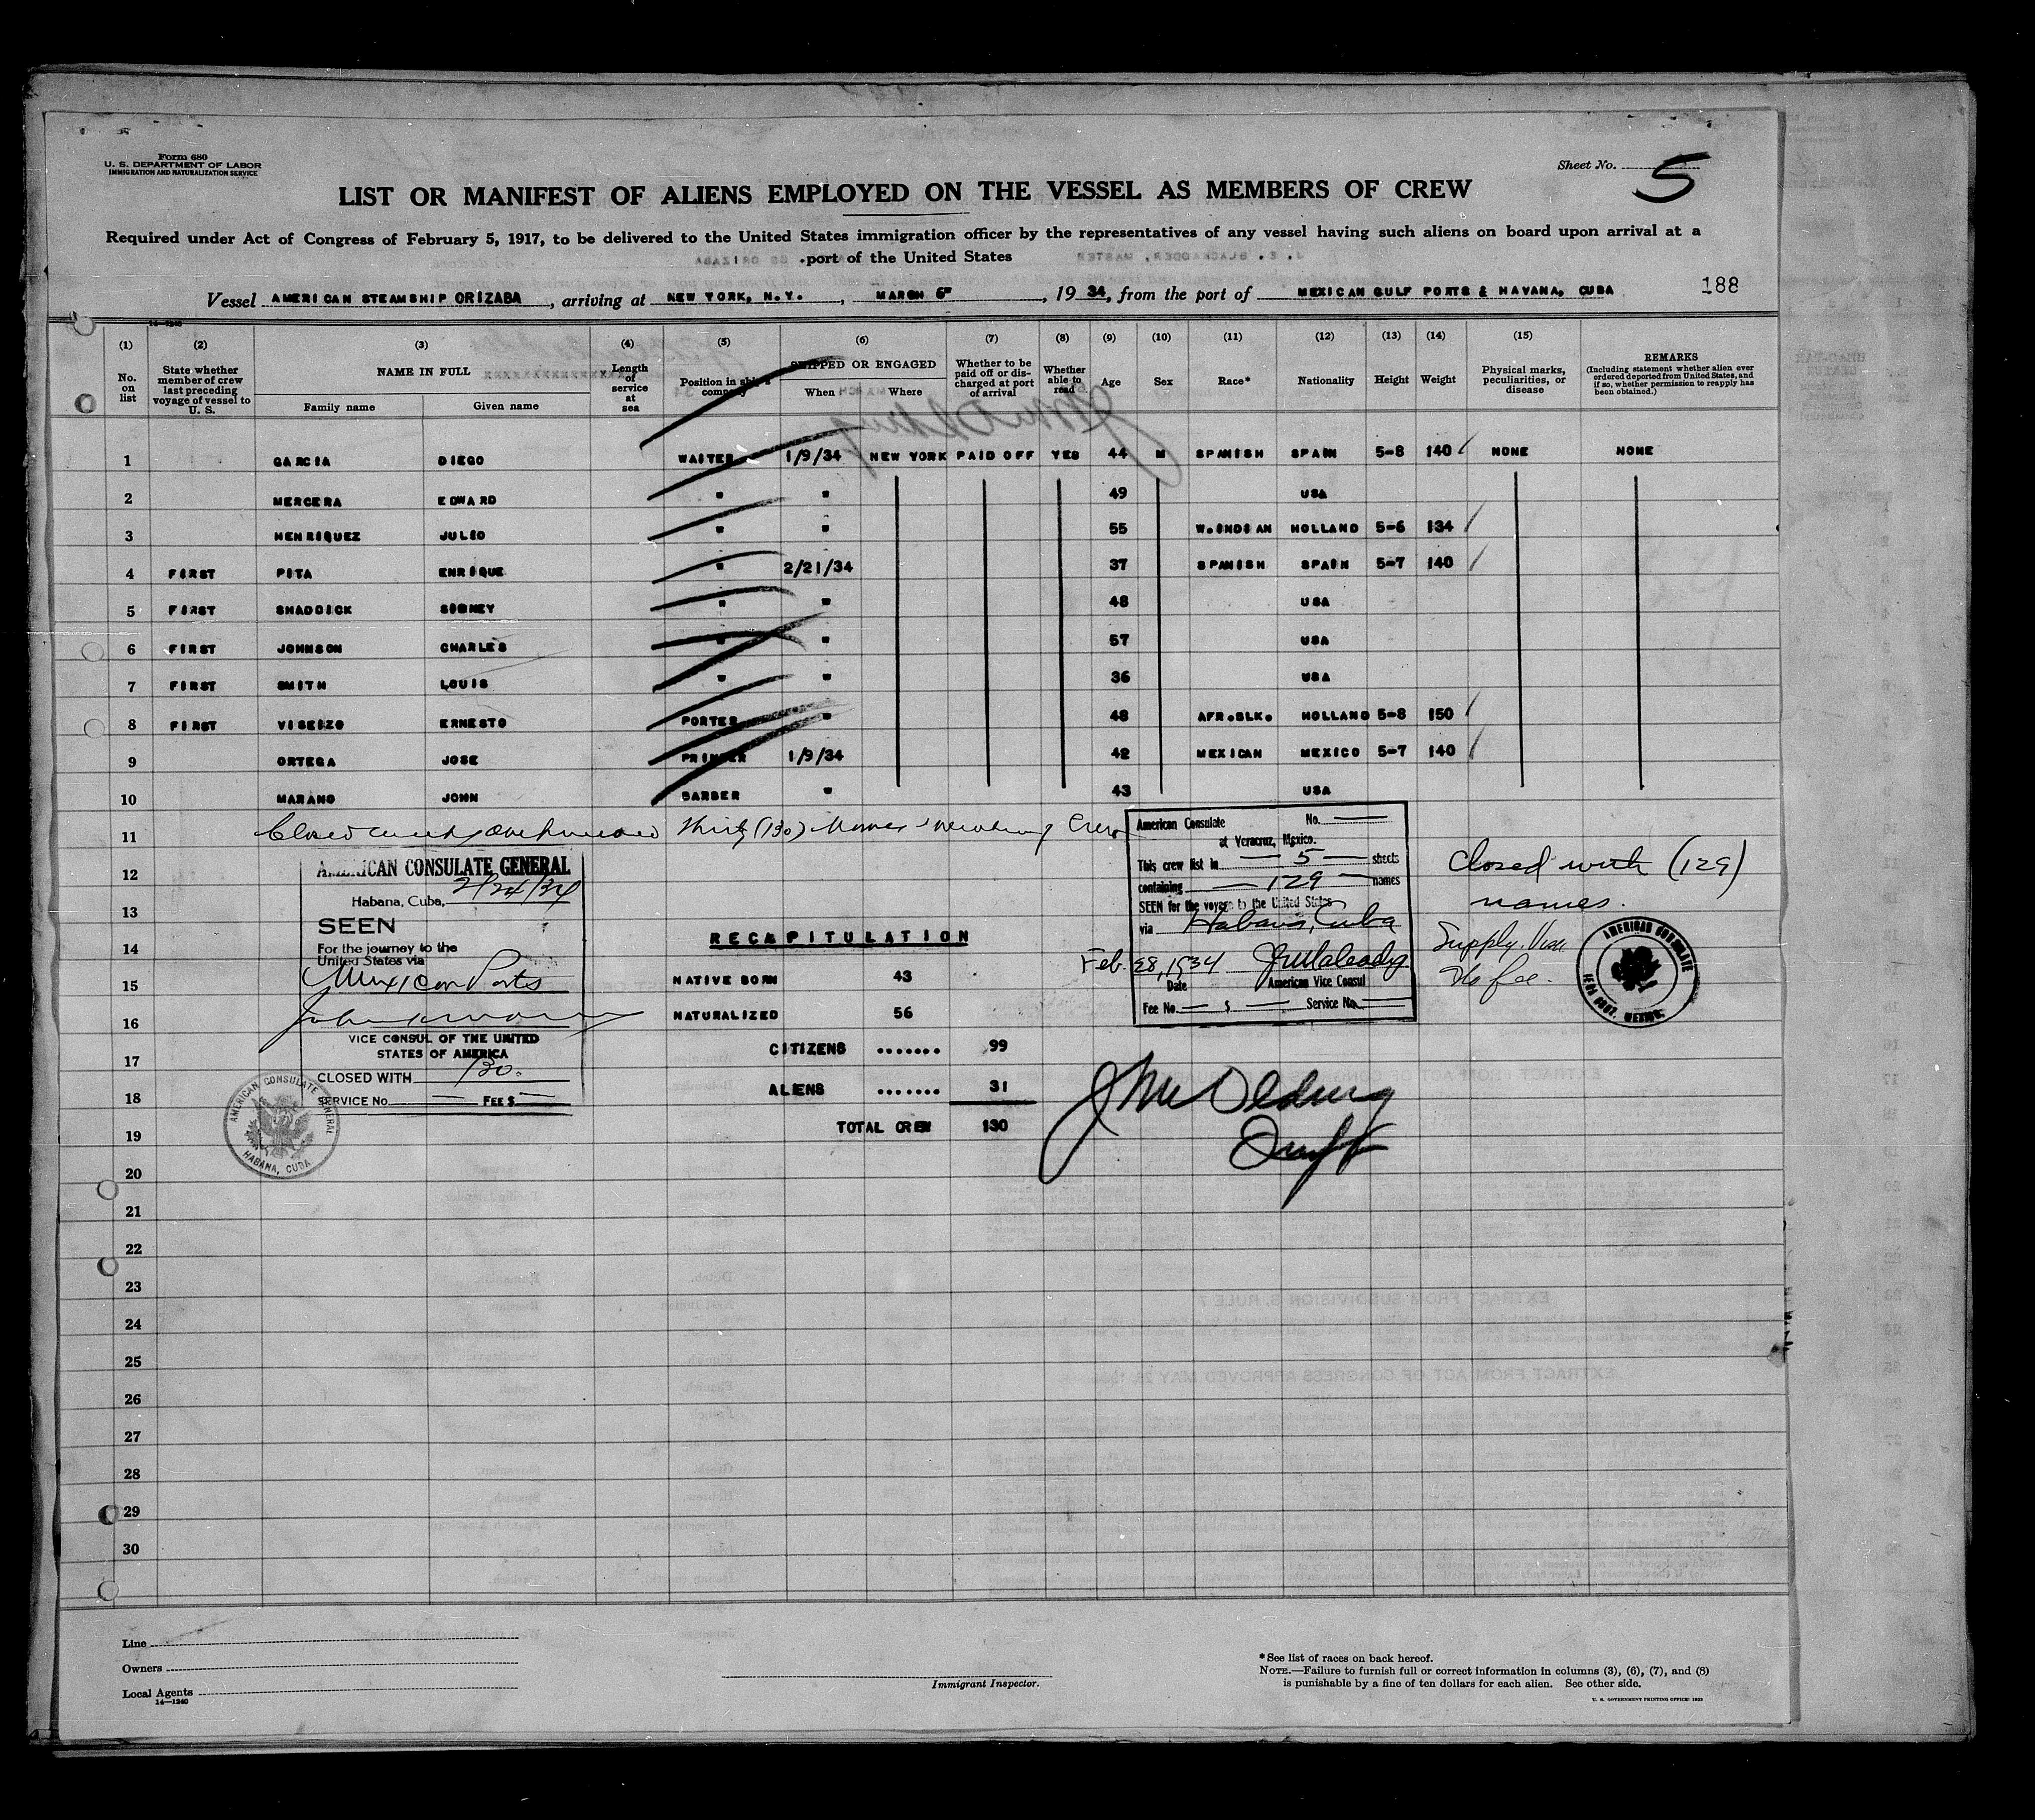 Form 680
U. S. DEPARTMENT OF LABOR
IMMIGRATION AND NATURALIZATION SERVICE
Sheet No. 5
LIST OR MANIFEST OF ALIENS EMPLOYED ON THE VESSEL AS MEMBERS OF CREW
Required under Act of Congress of February 5, 1917, to be delivered to the United States immigration officer by the representatives of any vessel having such aliens on board upon arrival at a
port of the United States
Vessel AMERICAN STEAMSHIP ORIZABA, arriving at NEW YORK, N.Y., MARCH 6, 1934, from the port of MEXICAN GULF PORTS & HAVANA, CUBA 188
14—1240
(1) (2) (3) (4) (5) (6) (7) (8) (9) (10) (11) (12) (13) (14) (15)
No. on list
State whether member of crew last preceding voyage of vessel to U. S.
NAME IN FULL
Family name Given name
Length of service at sea
Position in ship's company
SHIPPED OR ENGAGED
When Where
Whether to be paid off or discharged at port of arrival
Whether able to read
Age
Sex
Race*
Nationality
Height
Weight
Physical marks, peculiarities, or disease
REMARKS
(Including statement whether alien ever ordered deported from United States, and if so, whether permission to reapply has been obtained.)
1 GARCIA DIEGO WAITER 1/9/34 NEW YORK PAID OFF YES 44 M SPANISH SPAIN 5-8 140 NONE NONE
2 MERCERA EDWARD " " 49 USA
3 HENRIQUEZ JULIO " " 55 W.INDIAN HOLLAND 5-6 134
4 FIRST PITA ENRIQUE " 2/21/34 37 SPANISH SPAIN 5-7 140
5 FIRST SHADDICK SIDNEY " " 48 USA
6 FIRST JOHNSON CHARLES " " 57 USA
7 FIRST SMITH LOUIS " " 36 USA
8 FIRST VISEIZO ERNESTO PORTER " 48 AFR.BLK. HOLLAND 5-8 150
9 ORTEGA JOSE PRINTER 1/9/34 42 MEXICAN MEXICO 5-7 140
10 MARANO JOHN BARBER " 43 USA
11 Closed with one hundred thirty (130) names members Crew
12
13
14
15
16
17
18
19
20
21
22
23
24
25
26
27
28
29
30
AMERICAN CONSULATE GENERAL
Habana, Cuba, 2/24/34
SEEN
For the journey to the
United States via
Mexican Ports
VICE CONSUL OF THE UNITED
STATES OF AMERICA
CLOSED WITH 130.
SERVICE No. — FEE $ —
AMERICAN CONSULATE GENERAL
HABANA, CUBA
RECAPITULATION
NATIVE BORN 43
NATURALIZED 56
CITIZENS ....... 99
ALIENS ....... 31
TOTAL CREW 130
American Consulate No. —
at Veracruz, Mexico.
This crew list in — 5 — sheets
containing — 129 — names
SEEN for the voyage to the United States
via Habana, Cuba
Feb. 28, 1934
Date American Vice Consul
Fee No. — $ — Service No. —
Closed with (129)
names.
Supply. Visa
No fee.
AMERICAN CONSULATE
VERA CRUZ, MEXICO.
Line
Owners
Local Agents
14—1240
Immigrant Inspector.
*See list of races on back hereof.
NOTE.—Failure to furnish full or correct information in columns (3), (6), (7), and (8)
is punishable by a fine of ten dollars for each alien. See other side.
U. S. GOVERNMENT PRINTING OFFICE: 1933